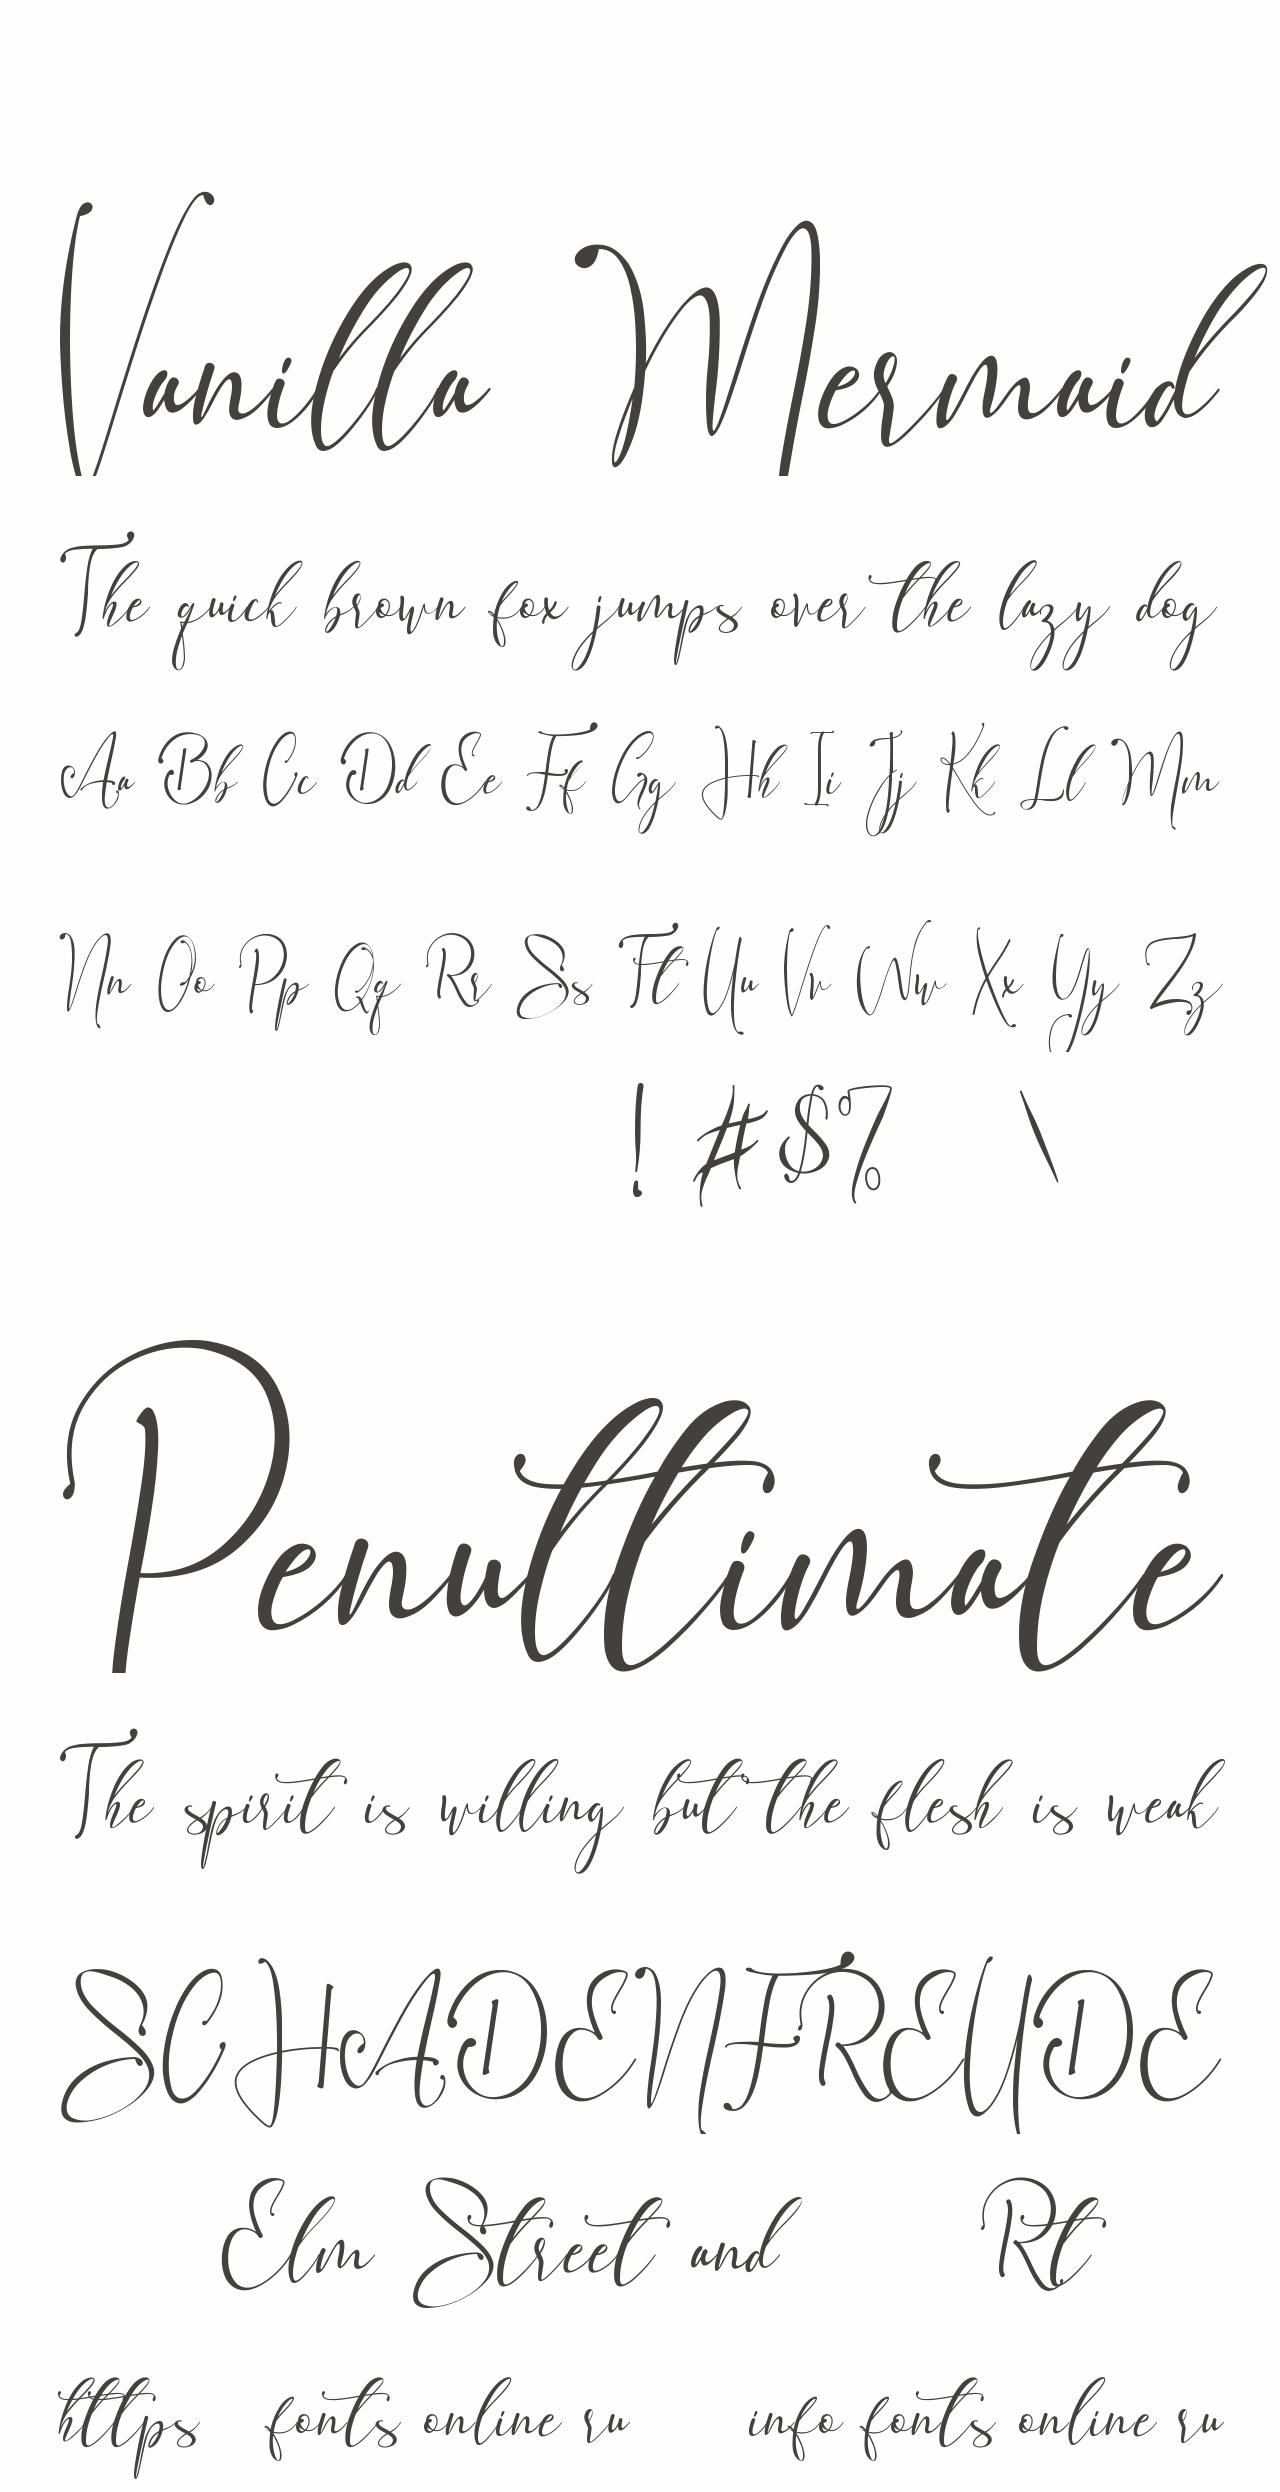 Vanilla Mermaid
The quick brown fox jumps over the lazy dog
Aa Bb Cc Dd Ee Ff Gg Hh Ii Jj Kk Ll Mm
Nn Oo Pp Qq Rr Ss Tt Uu Vv Ww Xx Yy Zz
! # $ % \
Penultimate
The spirit is willing but the flesh is weak
SCHADENFREUDE
Elm Street and Rt
https fonts online ru info fonts online ru